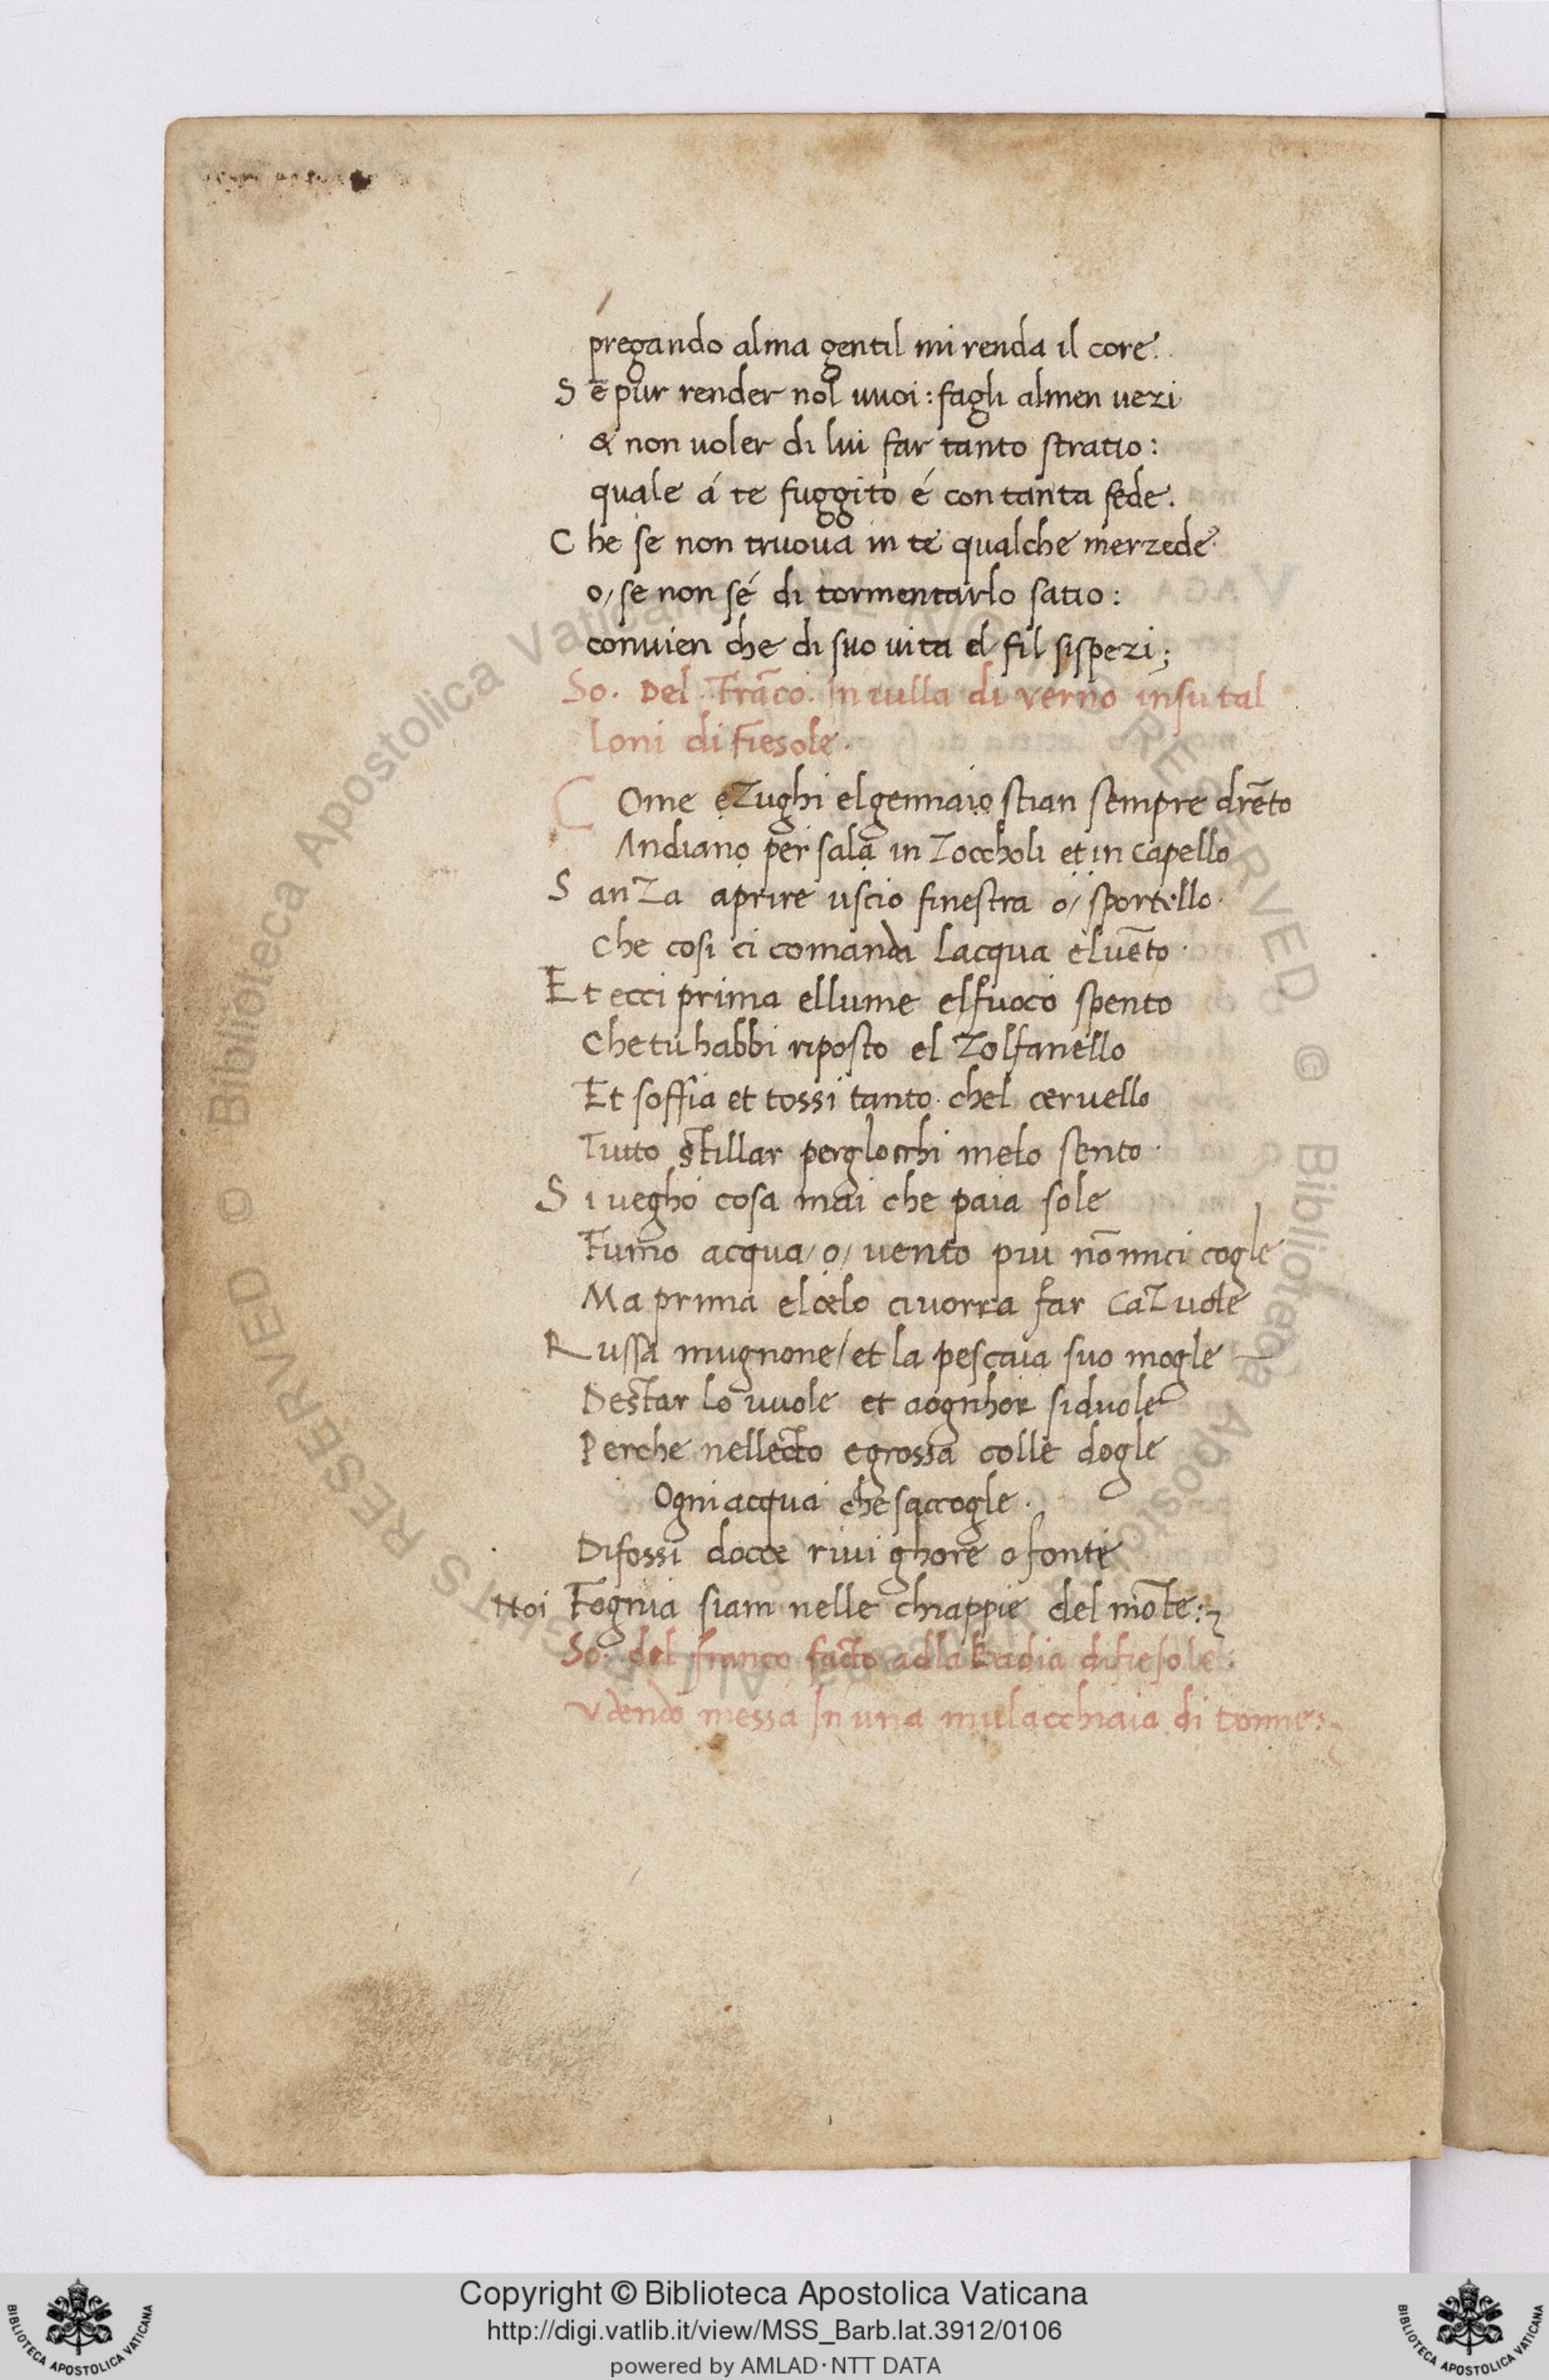 pregando alma gentil mi renda il core.
S e pur render nol vuoi: fagli almen vezi
& non uoler di lui far tanto stratio:
quale á te fuggito é con tanta fede.
C he se non truova in te qualche merzede
o/ se non sé di tormentarlo satio:
convien che di suo vita el fil sispezi;
So. Del. Frāco. In uilla di verno insu tal
loni di Fiesole.
C Ome eZughi elgennaio stian sempre drēto
Andiano per sala in Zoccholi et in capello
S anZa aprire uscio finestra o/ sportello.
Che cosi ci comanda lacqua eluēto.
Et ecci prima ellume elfuoco spento
Che tu habbi riposto el Zolfanello
Et soffia et tossi tanto. chel ceruello
Tutto stillar perglocchi melo sento.
S i ueghо cosa mai che paia sole
Fumo acqua/o/ uento piu nō mci cogle
Ma prima elcelo ci uorra far CaZuole
Russa mugnone/ et la pescaia suo mogle
Destar lo vuole et aognhor siduole
Perche nellecto egrossa colle dogle
Ogni acqua che saccogle.
Difossi docce rivi ghore o fonte
Noi Fognia siam nelle chiappie del mōte:
So. del franco facto adla Badia difiesole:
Udendo messa In una mulacchiaia di tonne:
Copyright © Biblioteca Apostolica Vaticana
http://digi.vatlib.it/view/MSS_Barb.lat.3912/0106
powered by AMLAD·NTT DATA
BIBLIOTECA APOSTOLICA VATICANA
BIBLIOTECA APOSTOLICA VATICANA